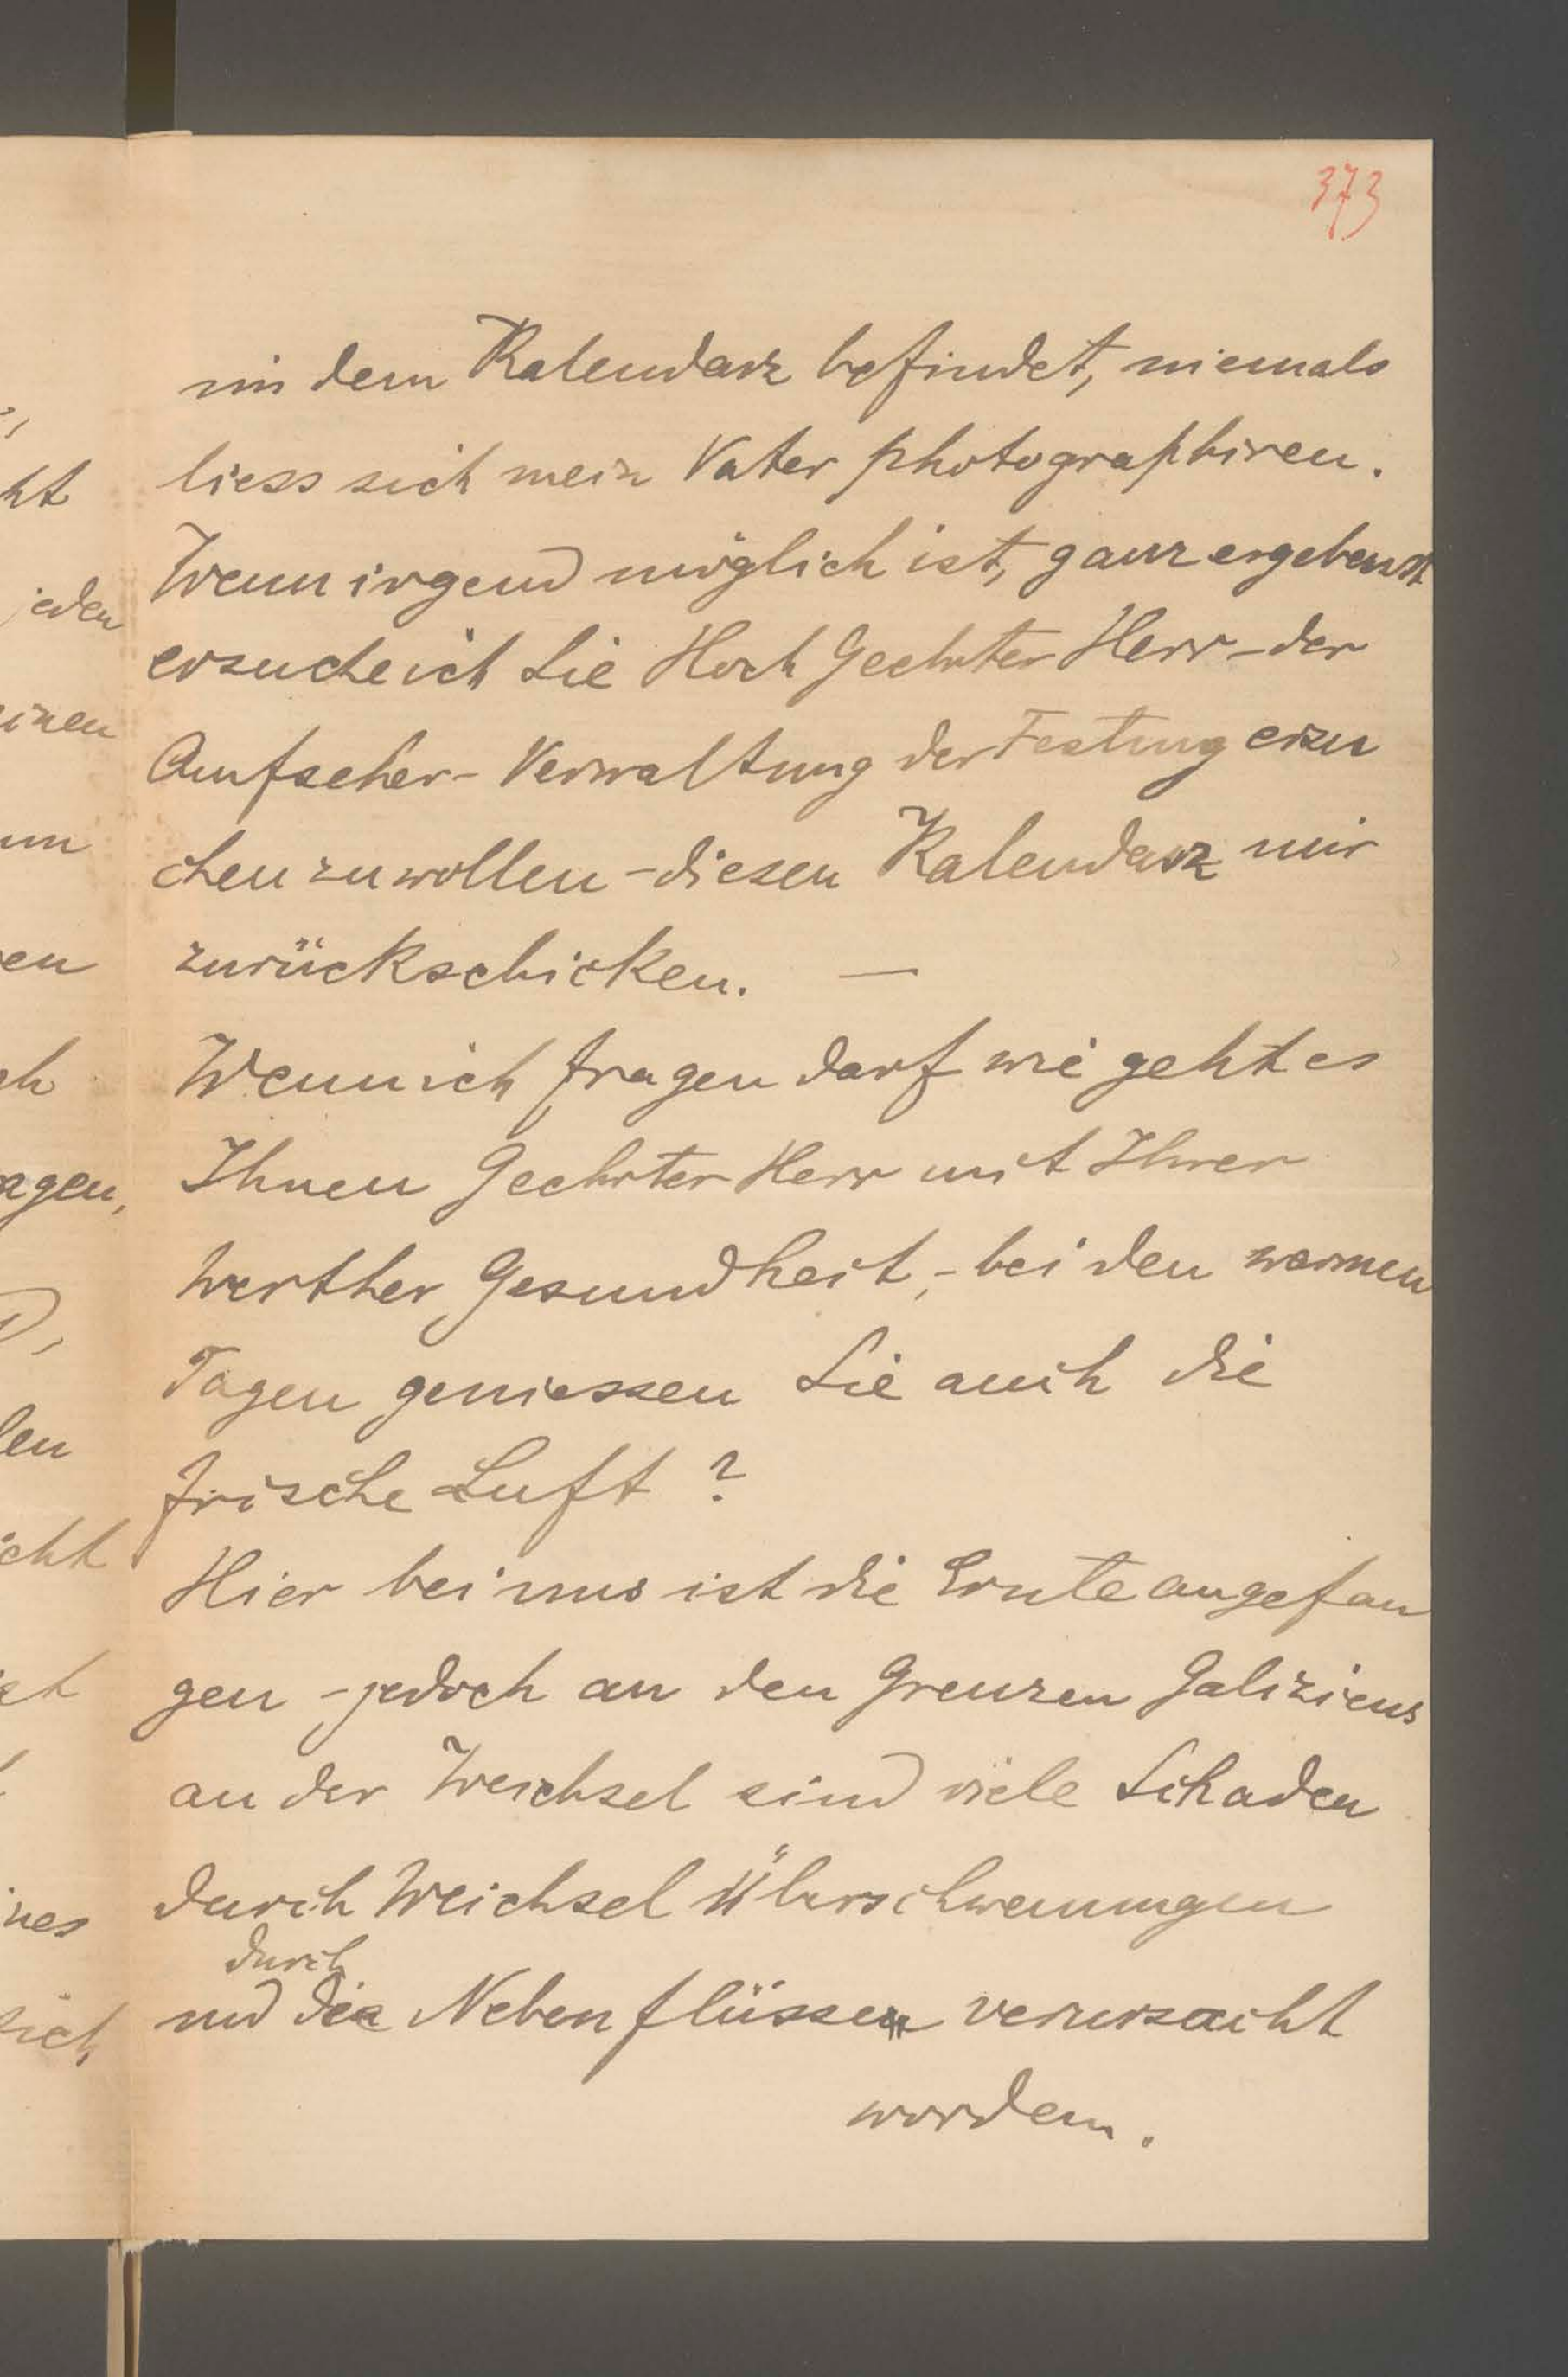 373
in dem Kalendarz befindet, niemals
liess sich mein Vater photographiren.
Wenn irgend möglich ist, ganz ergebenst
ersuche ich Sie Hoch Geehrter Herr - der
Aufseher - Verwaltung der Festung ersu
chen zu wollen - diesen Kalendarz mir
zurückschicken. —
Wenn ich fragen darf wie geht es
Ihnen Geehrter Herr mit Ihrer
werther Gesundheit, - bei den warmen
Tagen geniessen Sie auch die
frische Luft ?
Hier bei uns ist die Ernte angefan
gen - jedoch an den Grenzen Galiziens
an der Weichsel sind viele Schaden
durch Weichsel Überschwemungen
durch
und die Nebenflüsse verursacht
worden.
ht
jeden
einen
um
en
ch
agen,
len
icht
ines
sich